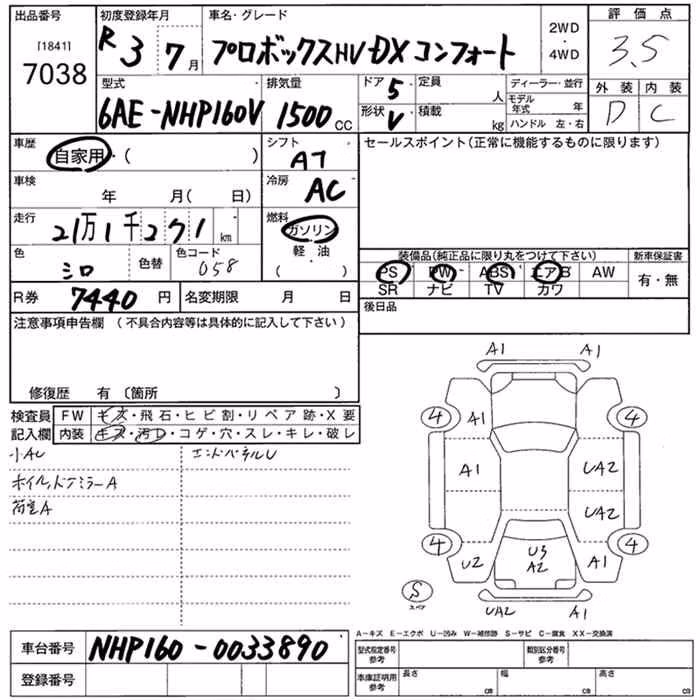 出品番号
[1841]
7038
初度登録年月
R 3 7月
車名・グレード
プロボックスHV DX コンフォート
2WD
・
4WD
評価点
3.5
外装 内装
D C
型式
6AE-NHP160V
排気量
1500cc
ドア 5
形状 V
定員 人
積載 kg
ディーラー・並行
モデル年式 年
ハンドル 左・右
車歴
自家用・( )
シフト
AT
車検
年 月( 日)
冷房
AC
走行
21万1千271km
燃料
ガソリン
軽油
( )
色
シロ
色替
色コード
058
R券 7440円
名変期限 月 日
セールスポイント(正常に機能するものに限ります)
装備品(純正品に限り丸をつけて下さい)
新車保証書
PS PW ABS エアB AW
SR ナビ TV カワ
有・無
後日品
注意事項申告欄(不具合内容等は具体的に記入して下さい)
修復歴 有〔箇所 〕
検査員記入欄
FW キズ・飛石・ヒビ割・リペア跡・X要
内装 キズ・汚レ・コゲ・穴・スレ・キレ・破レ
小AU
エンドパネルU
ホイル,ドアミラーA
荷室A
A1 A1
4 A1 4
A1 UA2
UA2
4 4
U2 U3 A2 A1
S
スペア
UA2 A1
A−キズ E−エクボ U−凹み W−補修跡 S−サビ C−腐食 XX−交換済
車台番号 NHP160-0033890
登録番号
型式指定番号
参考
類別区分番号
参考
車庫証明用
参考
長さ cm
幅 cm
高さ cm